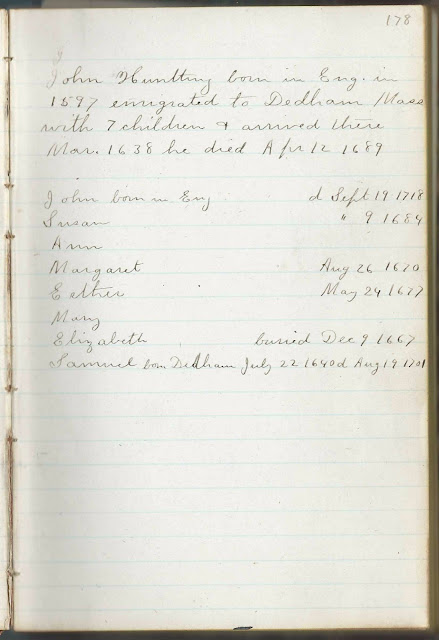 178
John Huntting born in Eng. in
1597 emigrated to Dedham Mass
with 7 children & arrived there
Mar. 1638 he died Apr 12 1689
John born in Eng d Sept 19 1718
Susan " 9 1684
Ann
Margaret Aug 26 1670
Esther May 24 1677
Mary
Elizabeth buried Dec 9 1667
Samuel born Dedham July 22 1640 d Aug 19 1701